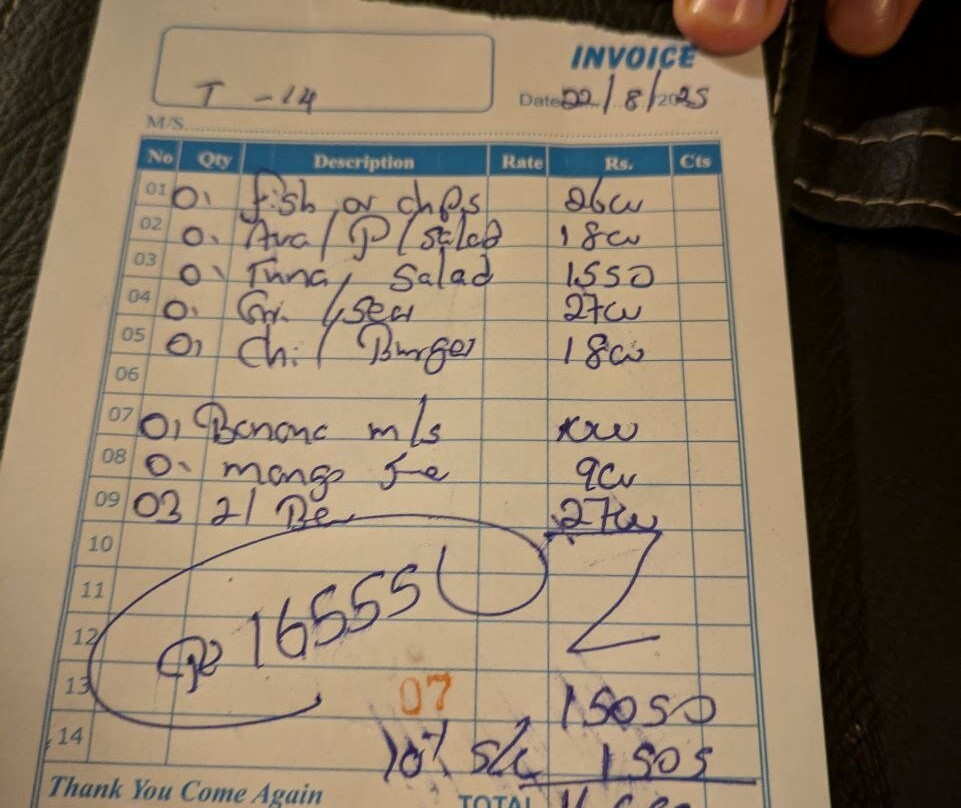 INVOICE
T - 14
Date 22/8/2025
M/S
No Qty Description Rate Rs. Cts
01 01 Fish or chips 2600
02 01 Ava/P/Salad 1800
03 01 Tuna/Salad 1550
04 01 Gri./Sea 2700
05 01 Ch:/Burger 1800
06
07 01 Banana m/s
08 01 mango Jue 900
09 03 2l Be 2700
10
11
12 16555
13 07 15050
14 10% s/c 1505
Thank You Come Again
TOTAL